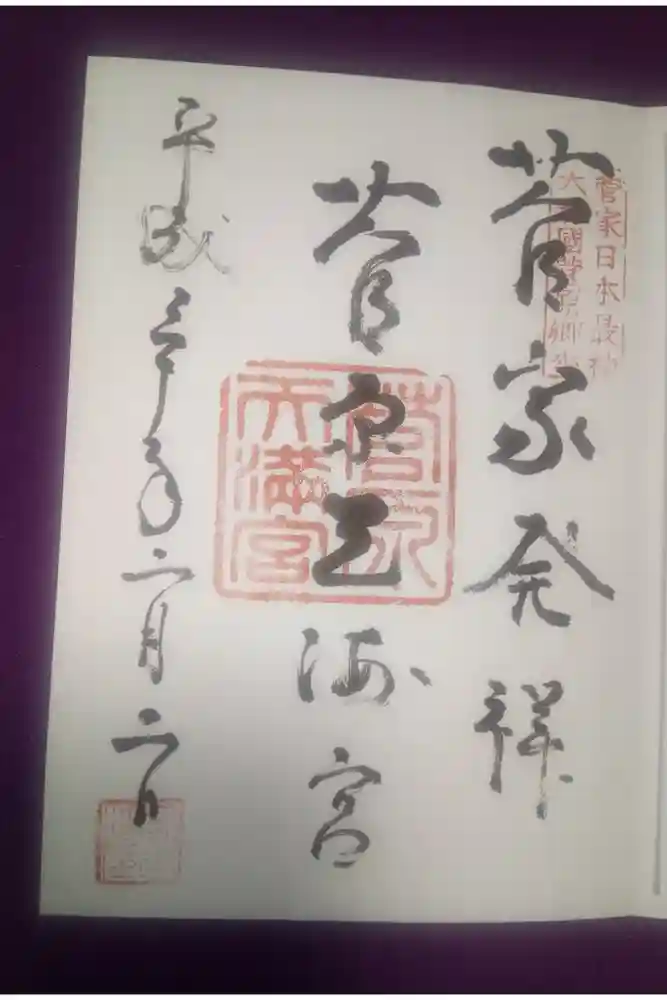 菅家発祥
菅家日本最
大和國菅原郷
菅原天満宮
菅原
天満宮
平成三十年二月二日